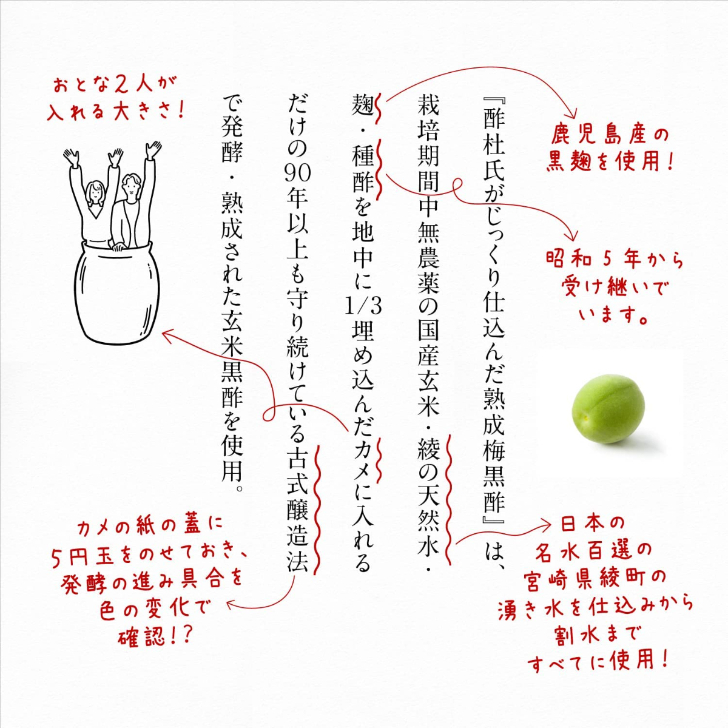 『酢杜氏がじっくり仕込んだ熟成梅黒酢』は、
栽培期間中無農薬の国産玄米・綾の天然水・
麹・種酢を地中に1/3埋め込んだカメに入れる
だけの90年以上も守り続けている古式醸造法
で発酵・熟成された玄米黒酢を使用。
鹿児島産の
黒麹を使用!
昭和5年から
受け継いで
います。
日本の
名水百選の
宮崎県綾町の
湧き水を仕込みから
割水まで
すべてに使用!
おとな2人が
入れる大きさ!
カメの紙の蓋に
5円玉をのせておき、
発酵の進み具合を
色の変化で
確認!?